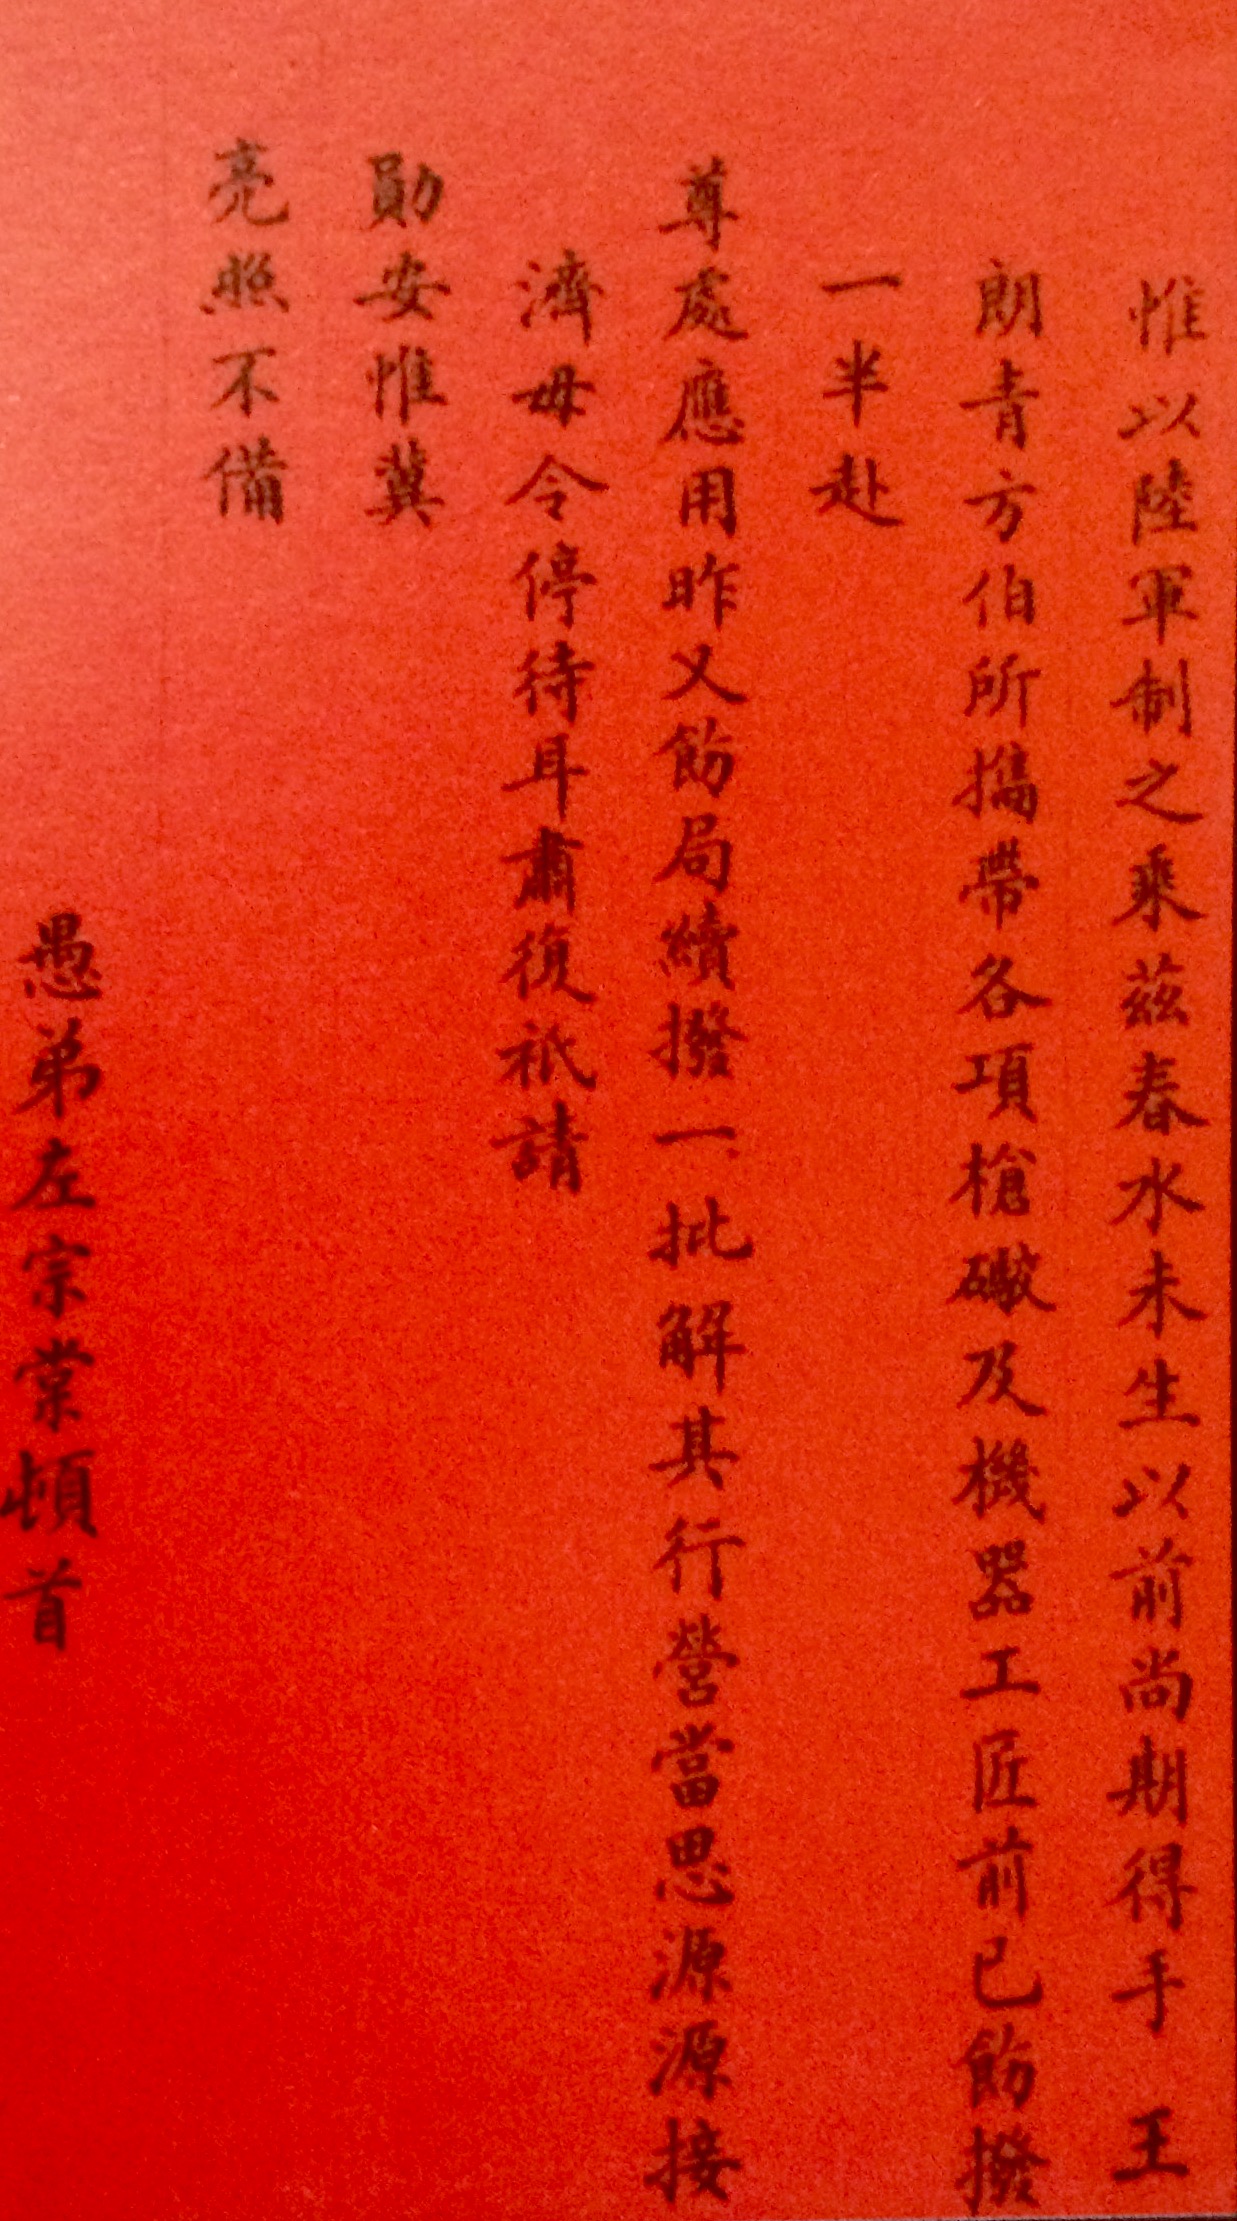 惟以陸軍制之乘茲春水未生以前尚期得手王
朗青方伯所攜帶各項槍礮及機器工匠前已飭撥
一半赴
尊處應用昨又飭局續撥一批解其行營當思源源接
濟毋令停待耳肅復祇請
勛安惟冀
亮照不備
愚弟左宗棠頓首